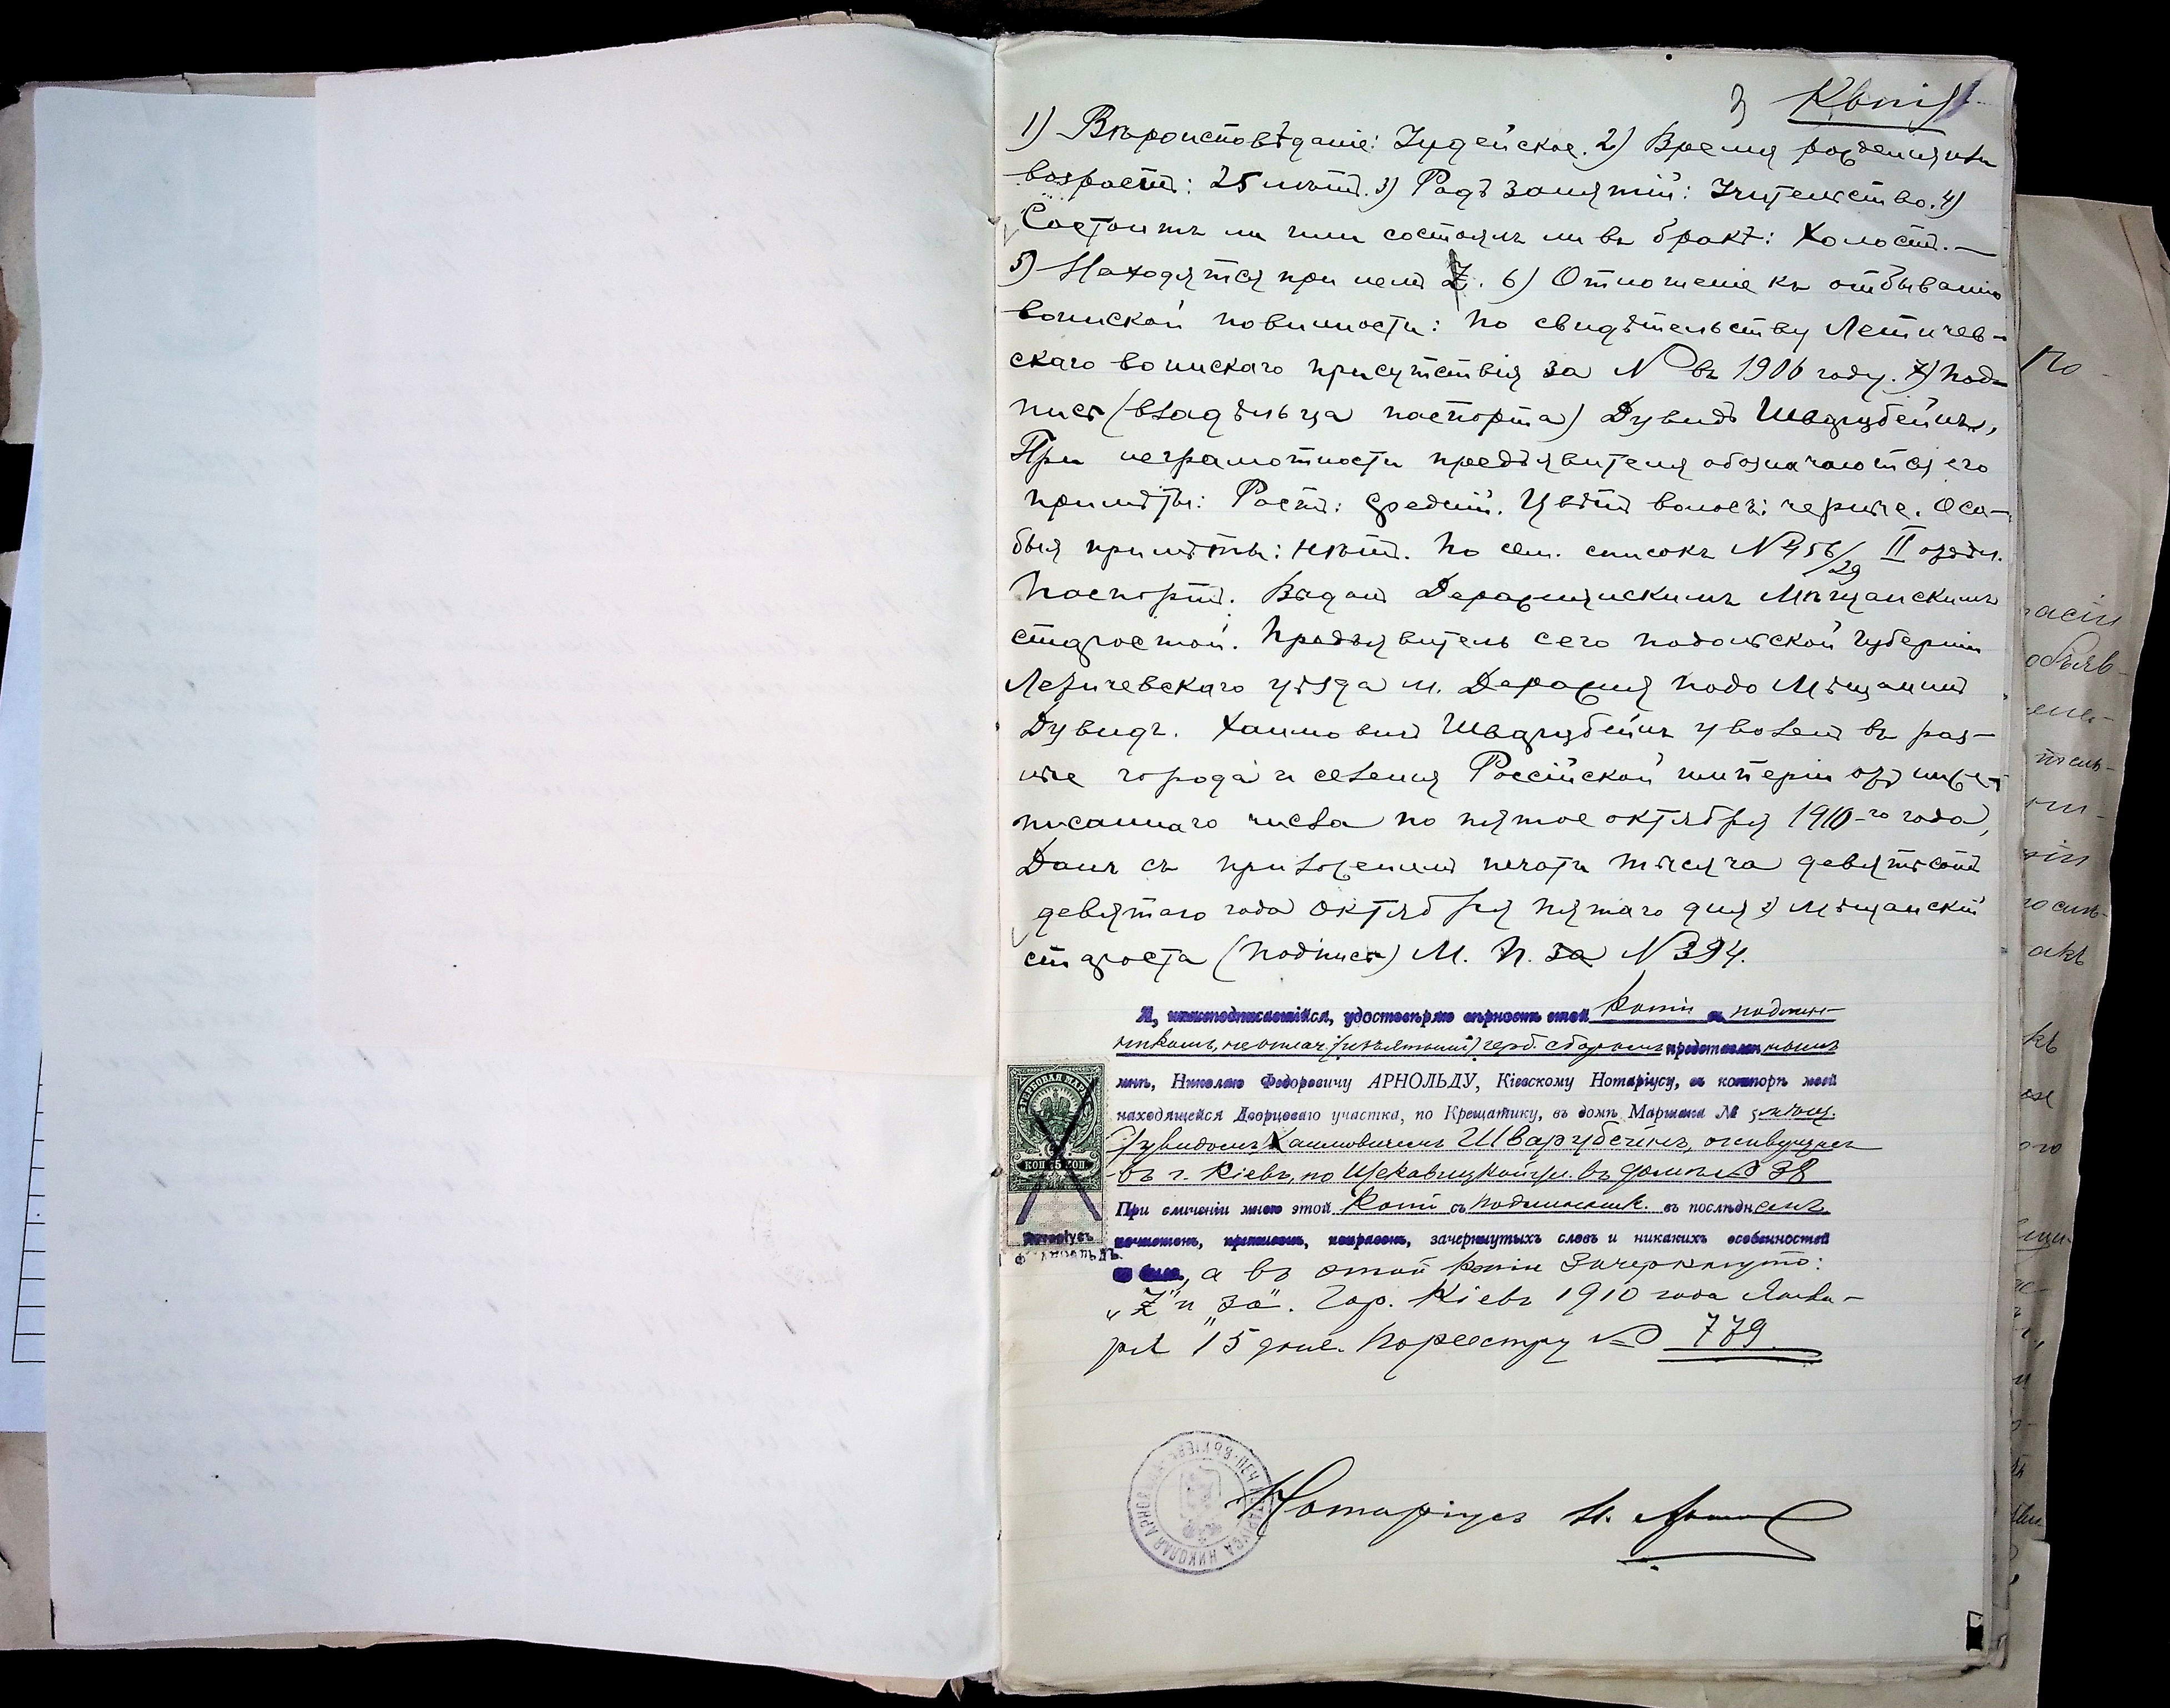 3 Копія
1) Вѣроисповѣданіе: Іудейское. 2) Время рожденія или
возрастъ: 25 лѣтъ. 3) Родъ занятій: Учительство. 4)
Состоитъ ли или состоялъ ли въ бракѣ: Холостъ. —
5) Находятся при немъ Z. 6) Отношеніе къ отбыванію
воинской повинности: По свидѣтельству Летичев-
скаго воинскаго присутствія за № въ 1906 году. 7) Под-
пись (владѣльца паспорта) Дувидъ Шварцбейнъ,
При неграмотности предъявителя обозначаются его
примѣты: Ростъ: Средній. Цвѣтъ волосъ: черные. Осо-
быя примѣты: Нѣтъ. По сем. списокъ № 456/29 II
Паспортъ. Выданъ Деражнянскимъ Мѣщанскимъ
старостой. Предъявитель сего Подольской Губерніи
Летичевскаго уѣзда м. Деражня Мѣщанинъ
Дувидъ. Хаимовичъ Шварцбейнъ уволенъ въ раз-
ные города и селенія Россійской имперіи отъ нижѣ-
писаннаго числа по пятое октября 1910-го года,
Данъ съ приложеніемъ печати тысяча девятьсотъ
девятаго года Октября пятаго дня Мѣщанскій
староста (подпись) М. П. за № 394.
Я, нижеподписавшійся, удостовѣряю вѣрность этой копіи съ подлин-
никомъ, неоплач. (изъятымъ) герб. сборомъ представленнымъ
мнѣ, Николаю Федоровичу АРНОЛЬДУ, Кіевскому Нотаріусу, въ конторѣ моей
находящейся Дворцоваго участка, по Крещатику, въ домѣ Маршака № 5 мѣщ.
Дувидомъ Хаимовичемъ Шварцбейнъ, живущимъ
въ г. Кіевѣ, по Щекавицкой ул. въ домѣ № 38
При сличеніи мною этой копіи съ подлинник. въ послѣднемъ
почистокъ, приписокъ, поправокъ, зачеркнутыхъ словъ и никакихъ особенностей
не было, а въ этой копіи зачеркнуто:
„Z“ и „за“. Гор. Кіевъ 1910 года Янва-
ря 15 дня. По реестру № 779.
КОП 75 КОП
Нотаріусъ
Нотаріусъ Н. Арнольдъ